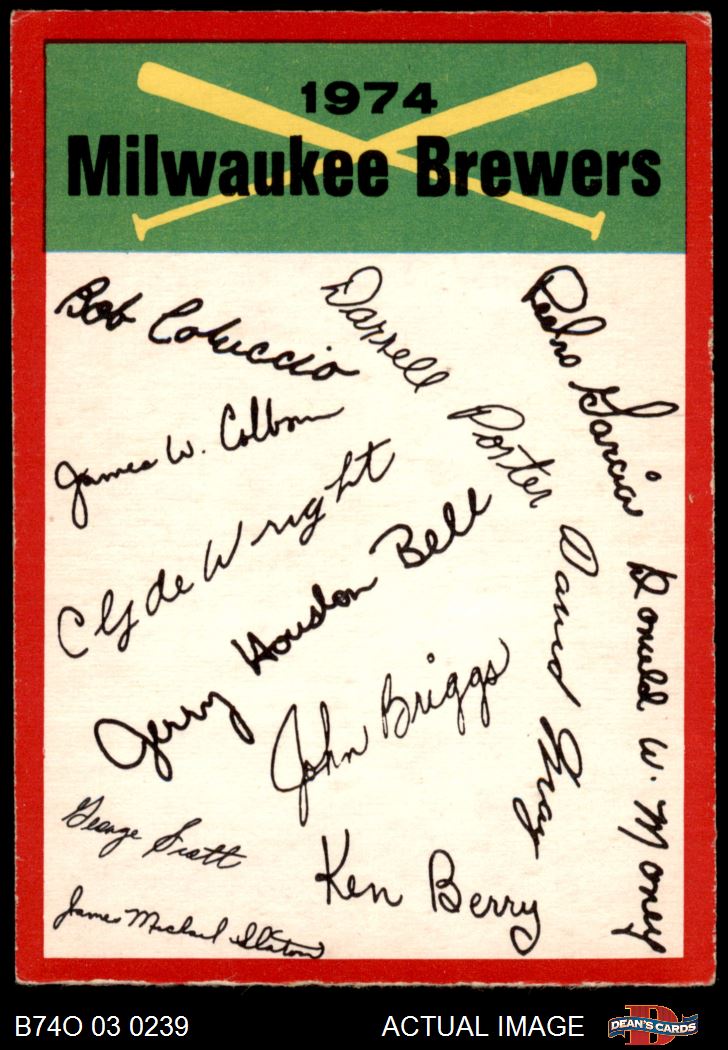 1974
Milwaukee Brewers
Bob Coluccio
Darrell Porter
Pedro Garcia
James W. Colborn
Clyde Wright
Jerry Houston Bell
David May
Donald W. Money
John Briggs
George Scott
Ken Berry
James Michael Slaton
B74O 03 0239
ACTUAL IMAGE
DEAN'S CARDS